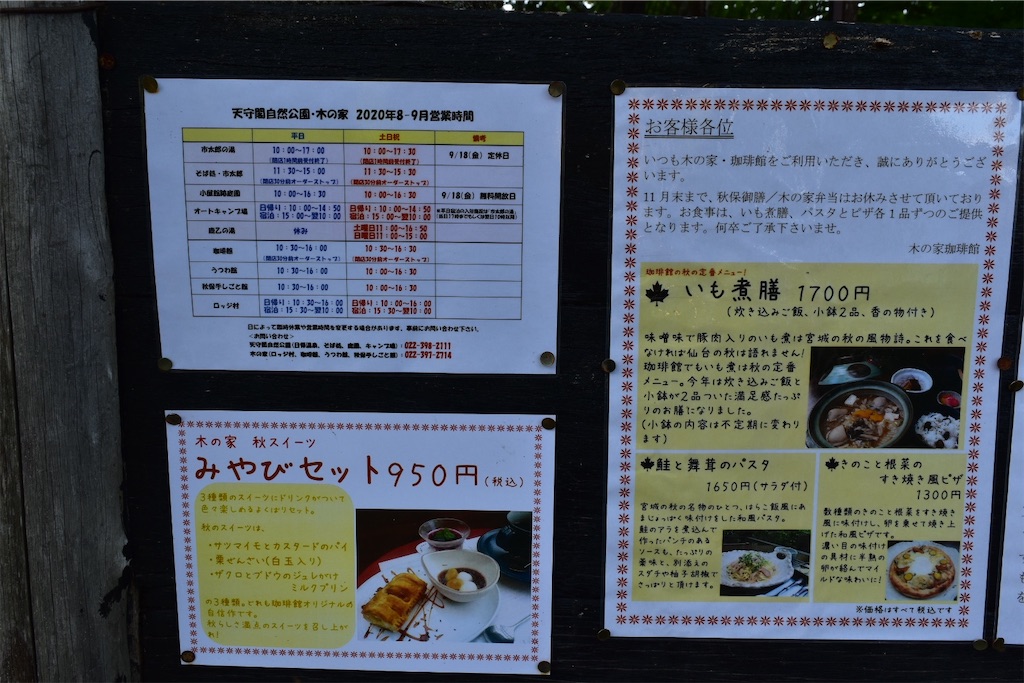 天守閣自然公園・木の家 2020年8-9月営業時間
平日 土日祝 備考
市太郎の湯 10：00～17：00 10：00～17：30 9/18(金) 定休日
(閉店1時間前受付終了) (閉店1時間前受付終了)
そば処・市太郎 11：30～15：00 11：30～15：30
(閉店30分前オーダーストップ) (閉店30分前オーダーストップ)
小屋館跡庭園 10：00～16：30 10：00～16：30 9/18(金) 無料開放日
オートキャンプ場 日帰り：10：00～14：50 日帰り：10：00～14：50
宿泊：15：00～翌10：00 宿泊：15：00～翌10：00
休み 土曜日11：00～16：50
日曜日11：00～15：00
珈琲館 10：30～16：00 10：30～16：30
(閉店30分前オーダーストップ) (閉店30分前オーダーストップ)
うつわ館 10：30～16：00 10：00～16：30
秋保手しごと館 10：30～16：00 10：00～16：30
ロッジ村 日帰り：10：30～16：00 日帰り：10：00～16：00
宿泊：15：30～翌10：00 宿泊：15：30～翌10：00
日によって臨時休業や営業時間を変更する場合があります。事前にお問い合わせ下さい。
＜お問い合わせ＞
天守閣自然公園(日保温泉、そば処、庭園、キャンプ場)：022-398-2111
木の家(ロッジ村、珈琲館、うつわ館、秋保手しごと館)：022-397-2714
木の家 秋スイーツ
みやびセット950円(税込)
3種類のスイーツにドリンクがついて
色々楽しめるよくばりセット。
秋のスイーツは、
・サツマイモとカスタードのパイ
・栗ぜんざい(白玉入り)
・ザクロとブドウのジュレがけ
ミルクプリン
の3種類。どれも珈琲館オリジナルの
自信作です。
秋らしさ満点のスイーツを召し上が
れ！
お客様各位
いつも木の家・珈琲館をご利用いただき、誠にありがとうござ
います。
11月末まで、秋保御膳／木の家弁当はお休みさせて頂いており
ます。お食事は、いも煮膳、パスタとピザ各1品ずつのご提供
となります。何卒ご了承下さいませ。
木の家珈琲館
珈琲館の秋の定番メニュー！
いも煮膳 1700円
(炊き込みご飯、小鉢2品、香の物付き)
味噌味で豚肉入りのいも煮は宮城の秋の風物詩。これを食べ
なければ仙台の秋は語れません！
珈琲館でもいも煮は秋の定番
メニュー。今年は炊き込みご飯と
小鉢が2品ついた満足感たっぷ
りのお膳になりました。
(小鉢の内容は不定期に変わり
ます)
鮭と舞茸のパスタ
1650円(サラダ付)
宮城の秋の名物のひとつ、はらこ飯風にあ
まじょっぱく味付けをした和風パスタ。
鮭のアラを煮込んで
作ったパンチのある
ソースも、たっぷりの
薬味と、別添えの
スダチや柚子胡椒で
さっぱりと頂けます。
きのこと根菜の
すき焼き風ピザ
1300円
数種類のきのこと根菜をすき焼き
風に味付けし、卵を乗せて焼き上
げた和風ピザです。
濃い目の味付け
の具材に半熟
の卵が絡んでマイ
ルドな味わいに！
※価格はすべて税込です